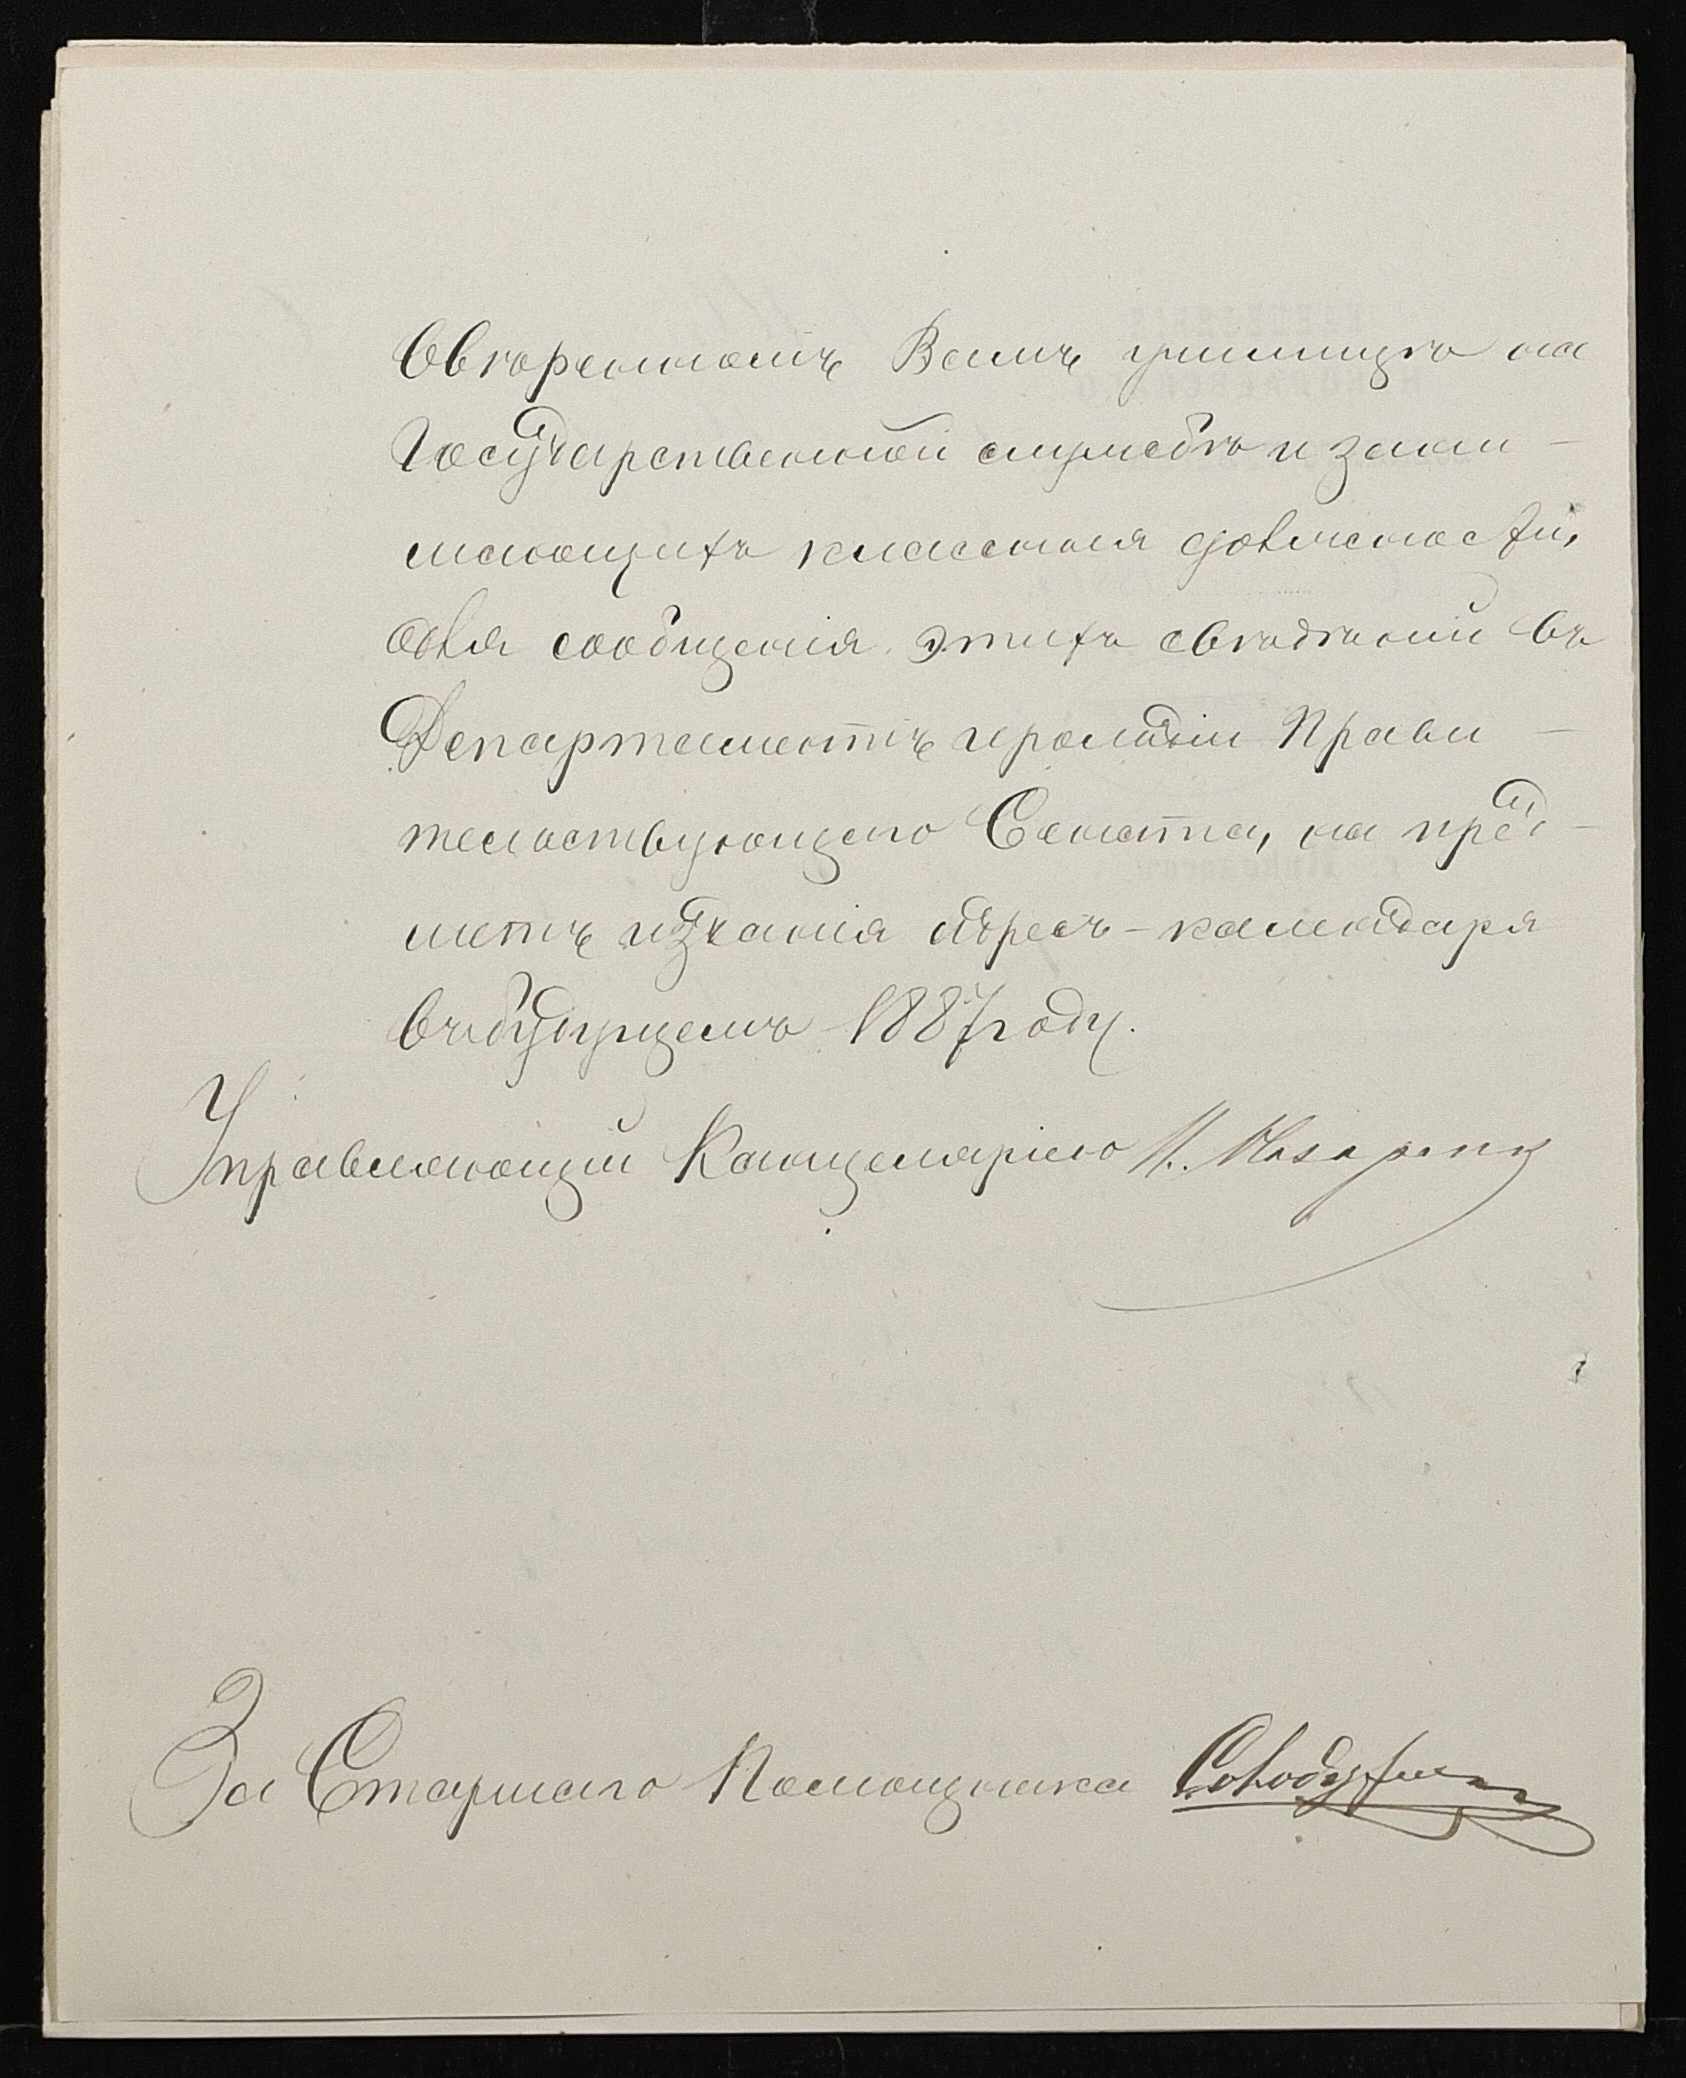 ввѣренномъ Вамъ училищѣ на
Государственной службѣ и зани-
мающихъ классныя должности,
для сообщенія этихъ свѣдѣній въ
Департаментъ герольдіи Прави-
тельствующаго Сената, на пред-
метъ изданія адресъ-календаря
въ будущемъ 1887 году.
Управляющій Канцеляріею
За Старшаго Помощника